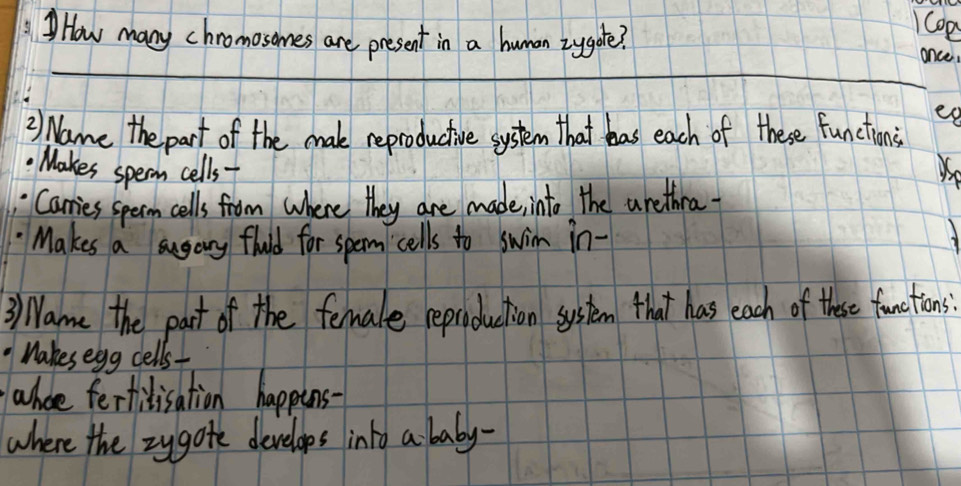 1) How many chromosomes are present in a human zygote?
2) Name the part of the male reproductive system that has each of these functions:
• Makes sperm cells-
• Carries sperm cells from where they are made, into the urethra-
• Makes a sugary fluid for sperm cells to swim in-
3) Name the part of the female reproduction system that has each of these functions:
• Makes egg cells-
• where fertilisation happens-
where the zygote develops into a baby-
1 Copy
once.